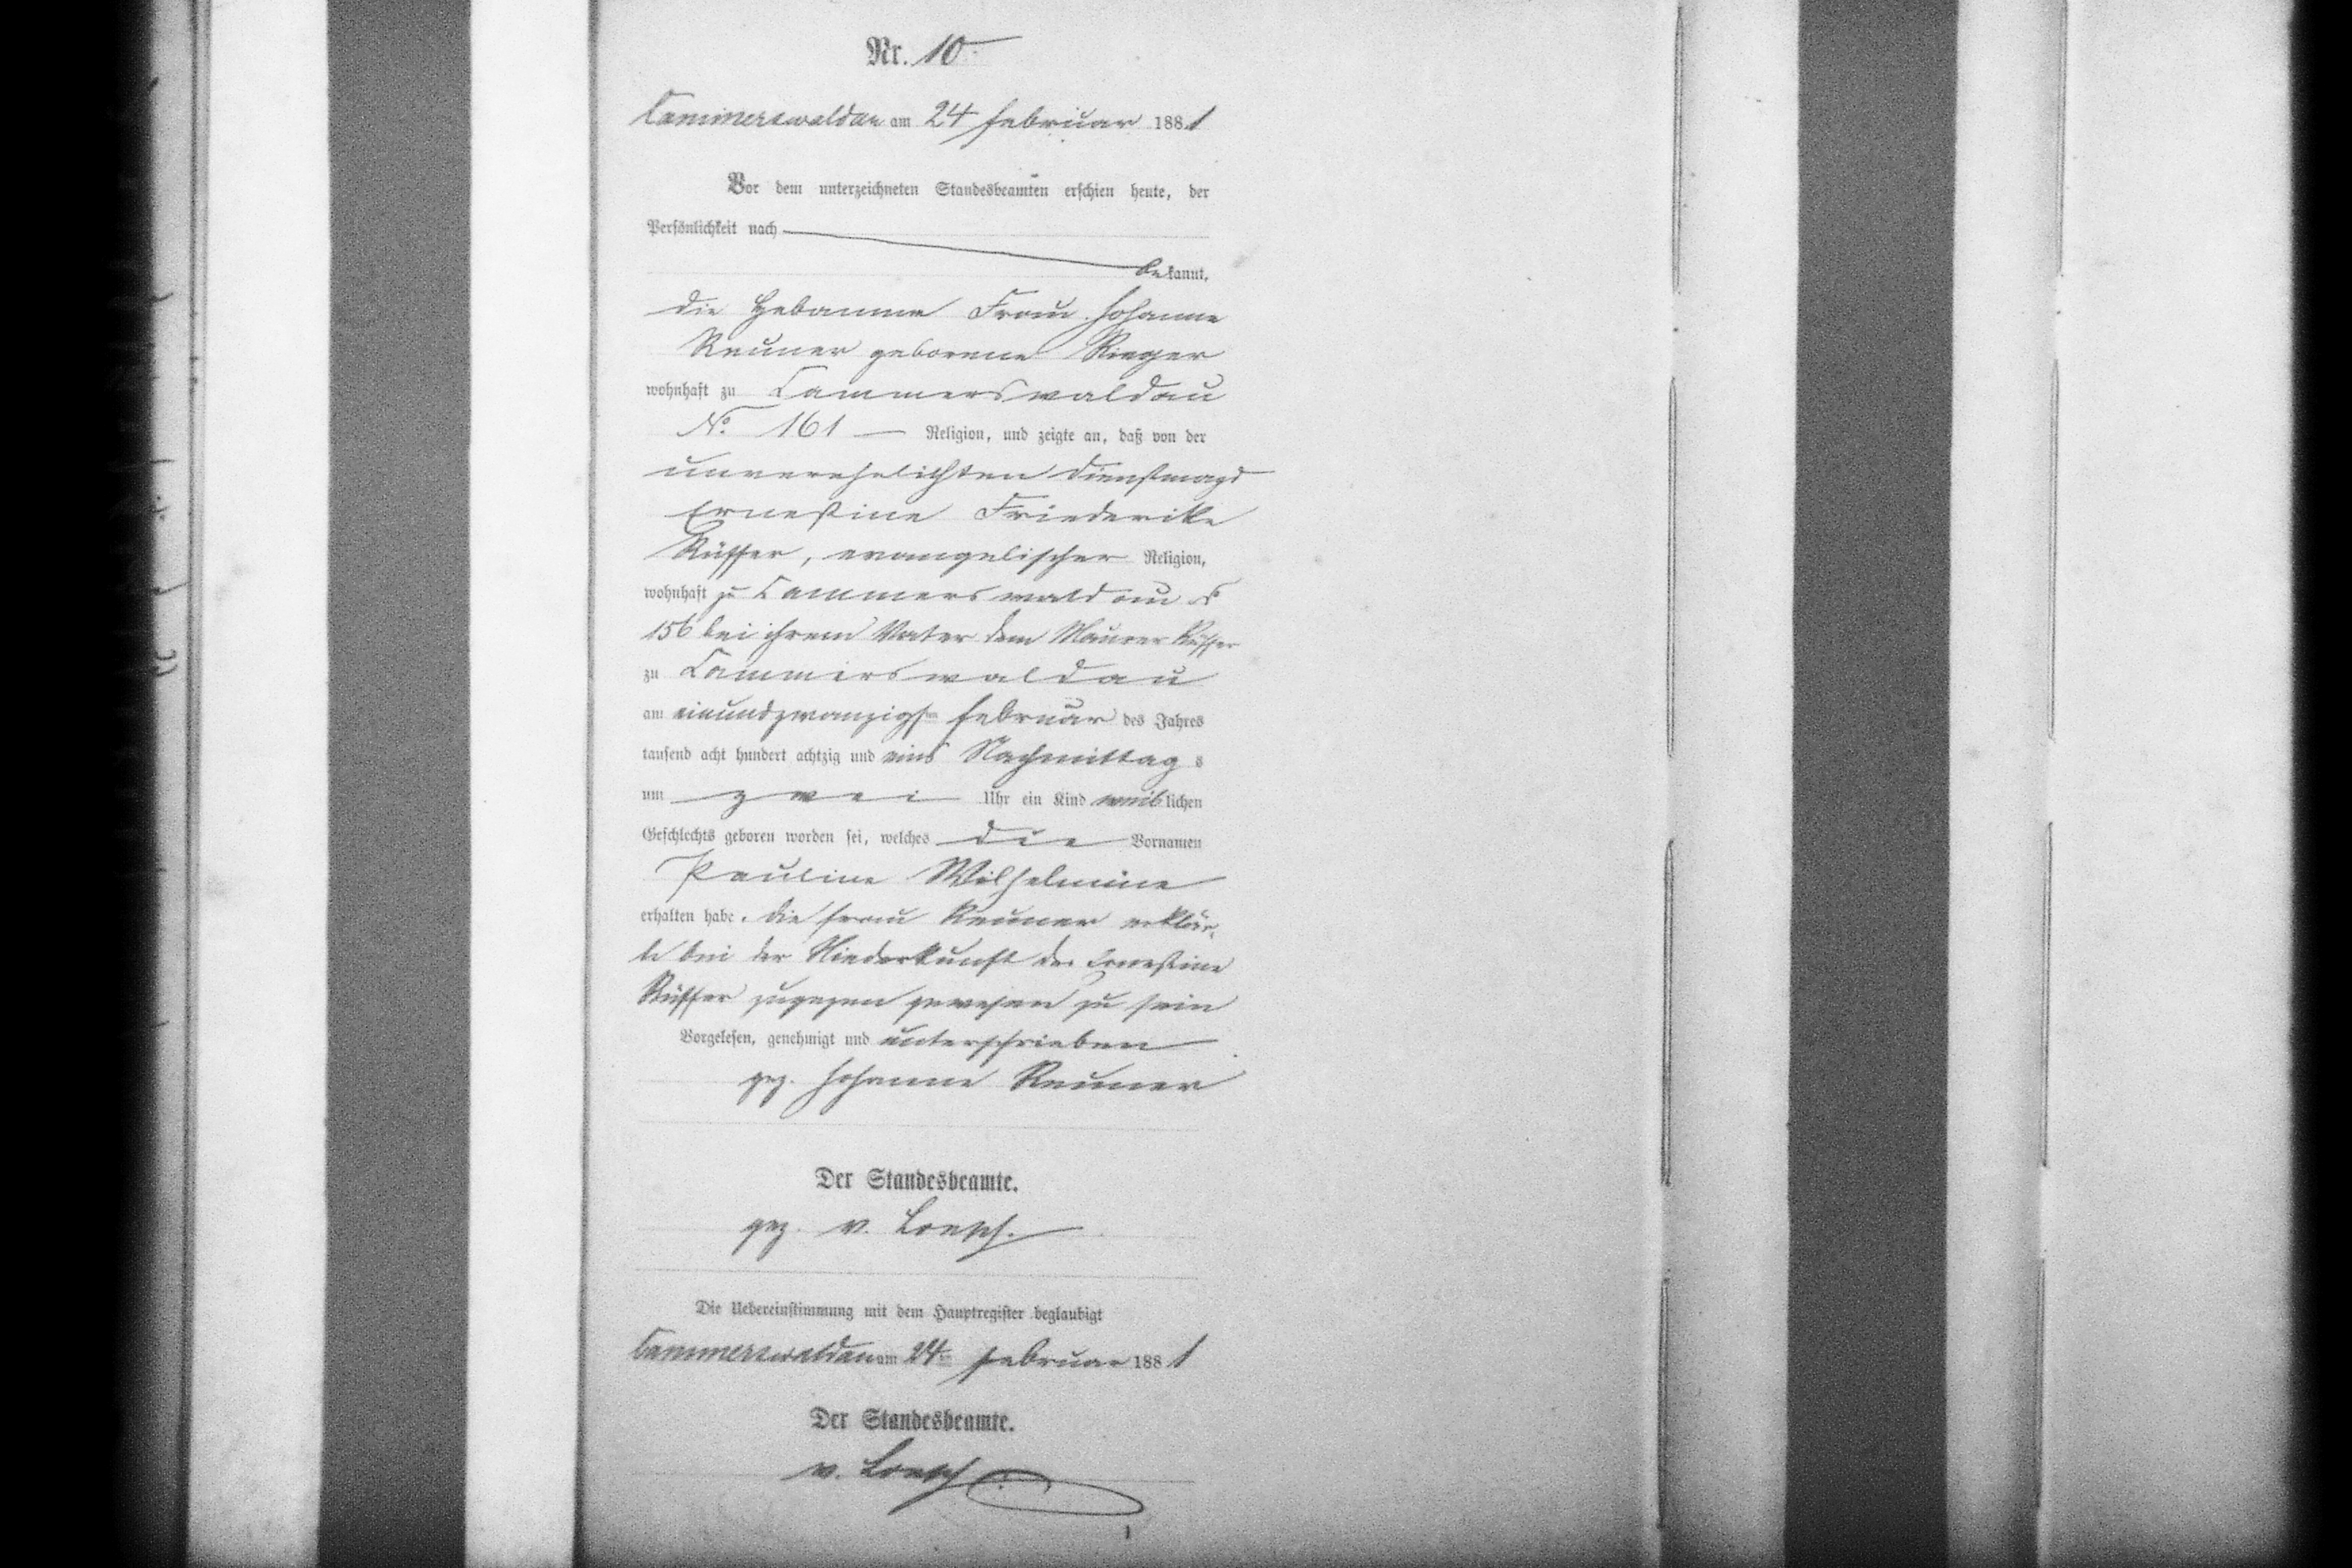 Nr. 10
Cammerswaldau am 24 Februar 1881
Vor dem unterzeichneten Standesbeamten erschien heute, der
Persönlichkeit nach
bekannt,
die Hebamme Frau Johanne
Reuner geborene Rieger
wohnhaft zu Cammerswaldau
No. 161 — Religion, und zeigte an, daß von der
unverehelichten Dienstmagd
Ernestine Friederike
Rüffer, evangelischer Religion,
wohnhaft zu Cammerswaldau No
156 bei ihrem Vater dem Maurer Rüffer
zu Cammerswaldau
am einundzwanzigsten Februar des Jahres
tausend acht hundert achtzig und eins Nachmittags
um zwei Uhr ein Kind weiblichen
Geschlechts geboren worden sei, welches die Vornamen
Pauline Wilhelmine
erhalten habe. Die Frau Reuner erklär-
te bei der Niederkunft der Ernestine
Rüffer zugegen gewesen zu sein
Vorgelesen, genehmigt und unterschrieben
gez. Johanne Reuner
Der Standesbeamte.
gez. v. Loesch.
Die Uebereinstimmung mit dem Hauptregister beglaubigt
Cammerswaldau am 24ten Februar 1881
Der Standesbeamte.
v. Loesch